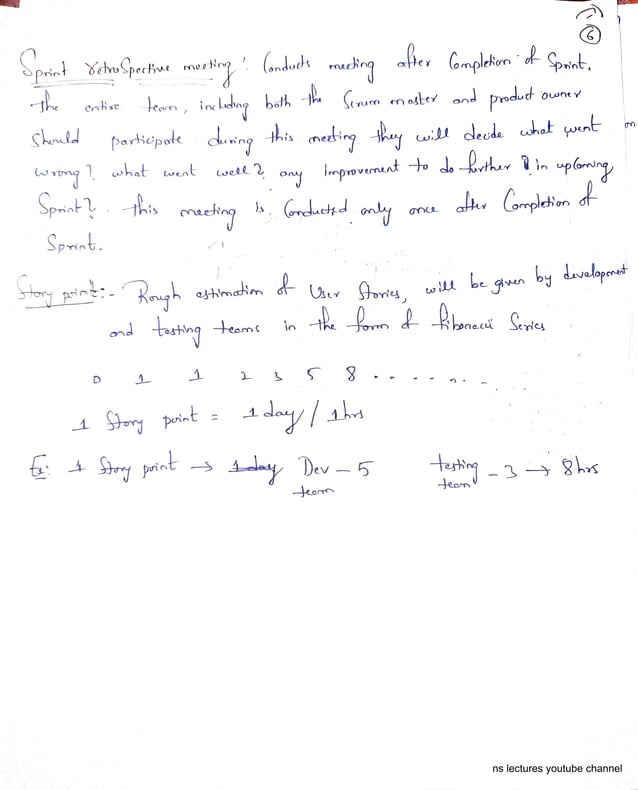 6
Sprint retrospective meeting : Conducts meeting after Completion of Sprint.
The entire team, including both the Scrum master and product owner
Should participate during this meeting they will decide what went
wrong? what went well? any Improvement to do further in upcoming
Sprint?. This meeting is Conducted only once after Completion of
Sprint.
Story point:- Rough estimation of User Stories, will be given by development
and testing teams in the form of fibonacii Series
0 1 1 2 3 5 8 . . . . . . . .
1 Story point = 1 day / 1 hrs
Ex: 1 Story point → 1 day Dev team – 5 testing team – 3 → 8 hrs
ns lectures youtube channel